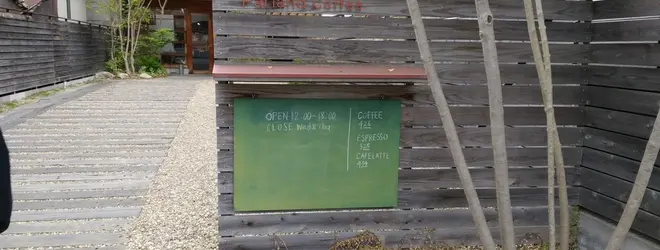 Coffee
OPEN 12:00-18:00
CLOSE Wed, Thu
COFFEE
ESPRESSO
CAFELATTE